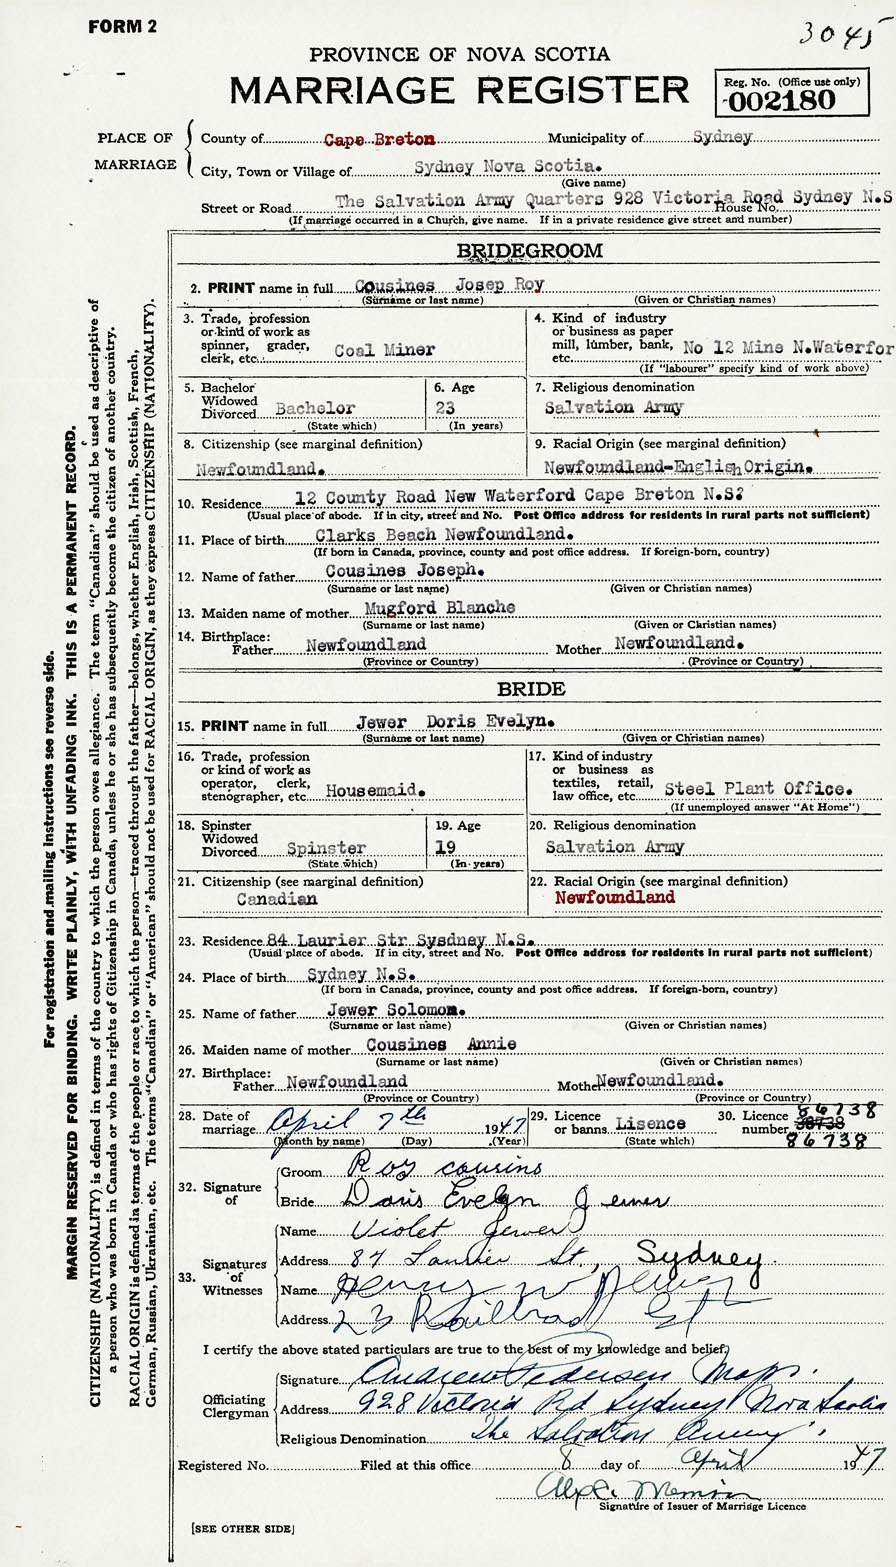 FORM 2
3045
PROVINCE OF NOVA SCOTIA
MARRIAGE REGISTER
Reg. No. (Office use only)
002180
PLACE OF MARRIAGE
County of Cape Breton Municipality of Sydney
City, Town or Village of Sydney Nova Scotia.
(Give name)
Street or Road The Salvation Army Quarters 928 Victoria Road Sydney N.S
House No.
(If marriage occurred in a Church, give name. If in a private residence give street and number)
BRIDEGROOM
2. PRINT name in full Cousines Josep Roy
(Surname or last name) (Given or Christian names)
3. Trade, profession
or kind of work as
spinner, grader,
clerk, etc. Coal Miner
4. Kind of industry
or business as paper
mill, lumber, bank,
etc. No 12 Mine N.Waterfor
(If "labourer" specify kind of work above)
5. Bachelor
Widowed
Divorced Bachelor
(State which)
6. Age
23
(In years)
7. Religious denomination
Salvation Army
8. Citizenship (see marginal definition)
Newfoundland.
9. Racial Origin (see marginal definition)
Newfoundland-English Origin.
10. Residence 12 County Road New Waterford Cape Breton N.S?
(Usual place of abode. If in city, street and No. Post Office address for residents in rural parts not sufficient)
11. Place of birth Clarks Beach Newfoundland.
(If born in Canada, province, county and post office address. If foreign-born, country)
12. Name of father Cousines Joseph.
(Surname or last name) (Given or Christian names)
13. Maiden name of mother Mugford Blanche
(Surname or last name) (Given or Christian names)
14. Birthplace:
Father Newfoundland Mother Newfoundland.
(Province or Country) (Province or Country)
BRIDE
15. PRINT name in full Jewer Doris Evelyn.
(Surname or last name) (Given or Christian names)
16. Trade, profession
or kind of work as
operator, clerk,
stenographer, etc. Housemaid.
17. Kind of industry
or business as
textiles, retail,
law office, etc. Steel Plant Office.
(If unemployed answer "At Home")
18. Spinster
Widowed
Divorced Spinster
(State which)
19. Age
19
(In years)
20. Religious denomination
Salvation Army
21. Citizenship (see marginal definition)
Canadian
22. Racial Origin (see marginal definition)
Newfoundland
23. Residence 84 Laurier Str Sysdney N.S.
(Usual place of abode. If in city, street and No. Post Office address for residents in rural parts not sufficient)
24. Place of birth Sydney N.S.
(If born in Canada, province, county and post office address. If foreign-born, country)
25. Name of father Jewer Solomom.
(Surname or last name) (Given or Christian names)
26. Maiden name of mother Cousines Annie
(Surname or last name) (Given or Christian names)
27. Birthplace:
Father Newfoundland Mother Newfoundland.
(Province or Country) (Province or Country)
28. Date of
marriage April 7th 1947
(Month by name) (Day) (Year)
29. Licence
or banns Lisence
(State which)
30. Licence
number 86738
86738
32. Signature of
Groom Roy cousins
Bride Doris Evelyn Jewer
33. Signatures of Witnesses
Name Violet Jewer
Address 84 Laurier St., Sydney.
Name Henry W Jewer
Address 23 Railroad St
I certify the above stated particulars are true to the best of my knowledge and belief.
Officiating Clergyman
Signature Andrew Pedersen Major.
Address 928 Victoria Rd Sydney Nova Scotia
Religious Denomination The Salvation Army
Registered No. Filed at this office 8 day of April 1947
Signature of Issuer of Marriage Licence
[SEE OTHER SIDE]
For registration and mailing instructions see reverse side.
MARGIN RESERVED FOR BINDING. WRITE PLAINLY, WITH UNFADING INK. THIS IS A PERMANENT RECORD.
CITIZENSHIP (NATIONALITY) is defined in terms of the country to which the person owes allegiance. The term "Canadian" should be used as descriptive of
a person who was born in Canada or who has rights of Citizenship in Canada, unless he or she has subsequently become the citizen of another country.
RACIAL ORIGIN is defined in terms of the people or race to which the person—traced through the father—belongs, whether English, Irish, Scottish, French,
German, Russian, Ukrainian, etc. The terms "Canadian" or "American" should not be used for RACIAL ORIGIN, as they express CITIZENSHIP (NATIONALITY).